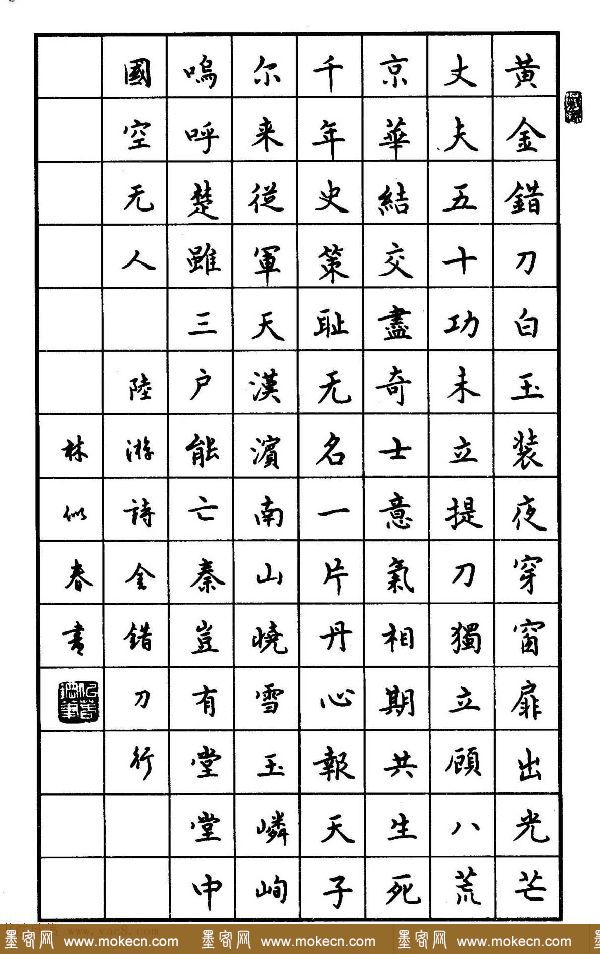 黄金錯刀白玉装夜穿窗扉出光芒
丈夫五十功未立提刀獨立顧八荒
京華結交盡奇士意氣相期共生死
千年史策耻无名一片丹心報天子
尔来従軍天漢濱南山嶢雪玉嶙峋
嗚呼楚雖三户能亡秦豈有堂堂中
國空无人 陸游詩金錯刀行
林似春書
墨客网 www.mokecn.com 墨客网 www.mokecn.com 墨客网 www.mokecn.com